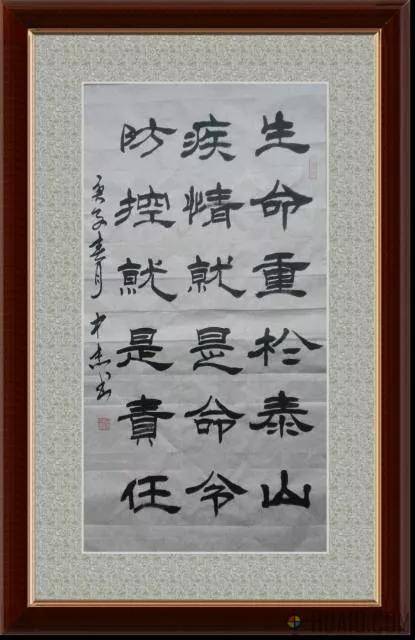 生命重於泰山
疾情就是命令
防控就是責任
庚子春月
书